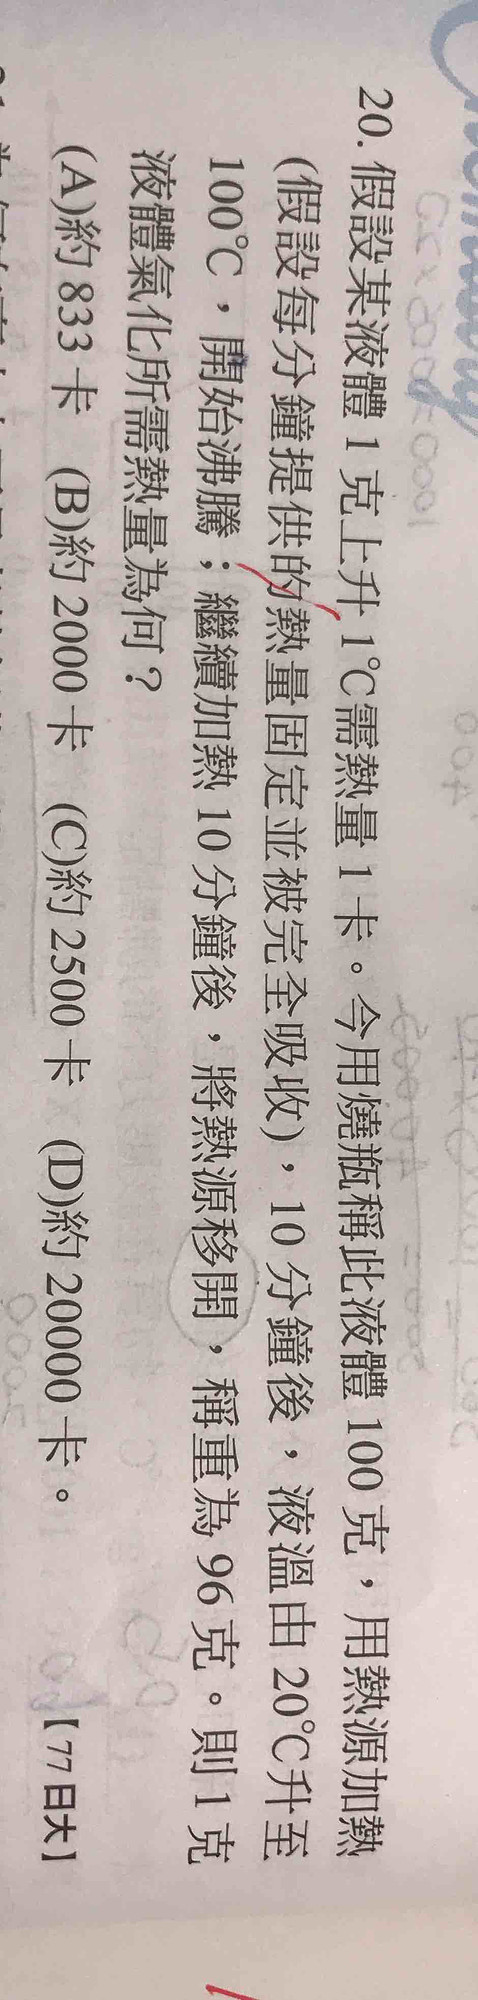 20. 假設某液體 1 克上升 1℃需熱量 1 卡。今用燒瓶稱此液體 100 克，用熱源加熱
(假設每分鐘提供的熱量固定並被完全吸收)，10 分鐘後，液溫由 20℃升至
100℃，開始沸騰；繼續加熱 10 分鐘後，將熱源移開，稱重為 96 克。則 1 克
液體氣化所需熱量為何？
(A)約 833 卡 (B)約 2000 卡 (C)約 2500 卡 (D)約 20000 卡。 【77 日大】